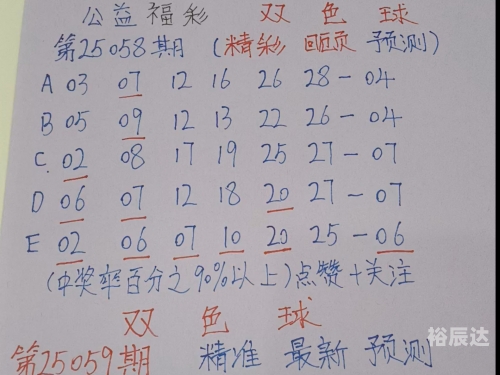 公益福彩 双色球
第25058期 (精彩回顾 预测)
A 03 07 12 16 26 28-04
B 05 09 12 13 22 26-04
C. 02 08 17 19 25 27-07
D 06 07 12 18 20 27-07
E 02 06 07 10 20 25-06
(中奖率百分之90%以上)点赞+关注
双色球
第25059期 精准 最新 预测
裕辰达